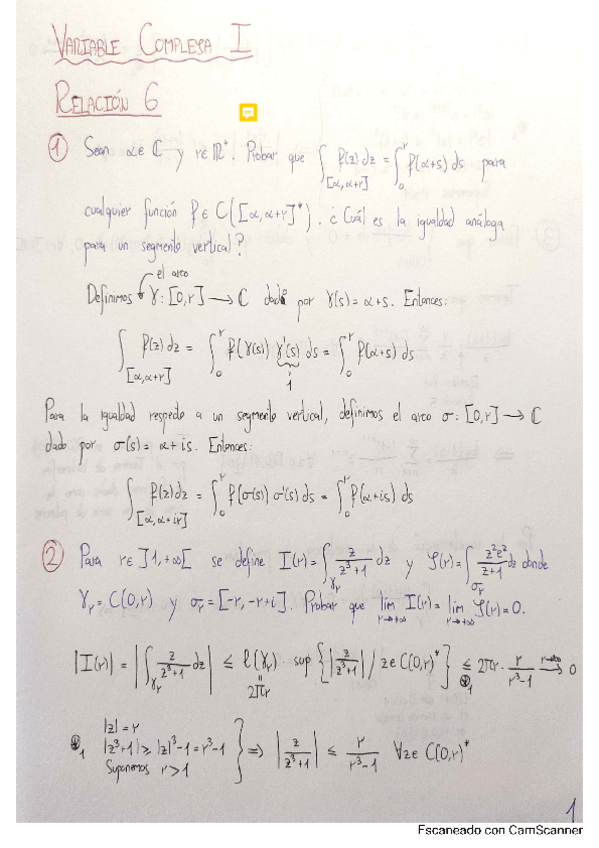 VARIABLE COMPLEJA I
RELACIÓN 6
① Sean α∈ℂ y r∈ℝ⁺. Probar que ∫_[α,α+r] f(z)dz = ∫₀ʳ f(α+s)ds para
cualquier función f∈C([α,α+r]*). ¿Cuál es la igualdad análoga
para un segmento vertical?
el arco
Definimos γ: [0,r] → ℂ dado por γ(s)=α+s. Entonces:
∫_[α,α+r] f(z)dz = ∫₀ʳ f(γ(s)) γ'(s) ds = ∫₀ʳ f(α+s) ds
1
Para la igualdad respecto a un segmento vertical, definimos el arco σ: [0,r] → ℂ
dado por σ(s)= α+is. Entonces:
∫_[α,α+ir] f(z)dz = ∫₀ʳ f(σ(s)) σ'(s) ds = ∫₀ʳ f(α+is) ds
② Para r∈]1,+∞[ se define I(r)=∫_γr z/(z³+1) dz y J(r)=∫_σr z²e^z/(z+1) dz donde
γr = C(0,r) y σr = [-r,-r+i]. Probar que lim_{r→+∞} I(r) = lim_{r→+∞} J(r)=0.
|I(r)| = |∫_γr z/(z³+1) dz| ≤ l(γr) · sup {|z/(z³+1)| / z∈C(0,r)*} ≤ 2πr · r/(r³-1) → 0
2πr
⊛₁ |z|=r
|z³+1| ≥ |z|³-1 = r³-1
Suponemos r>1
} ⇒ |z/(z³+1)| ≤ r/(r³-1) ∀z∈C(0,r)*
1
Escaneado con CamScanner